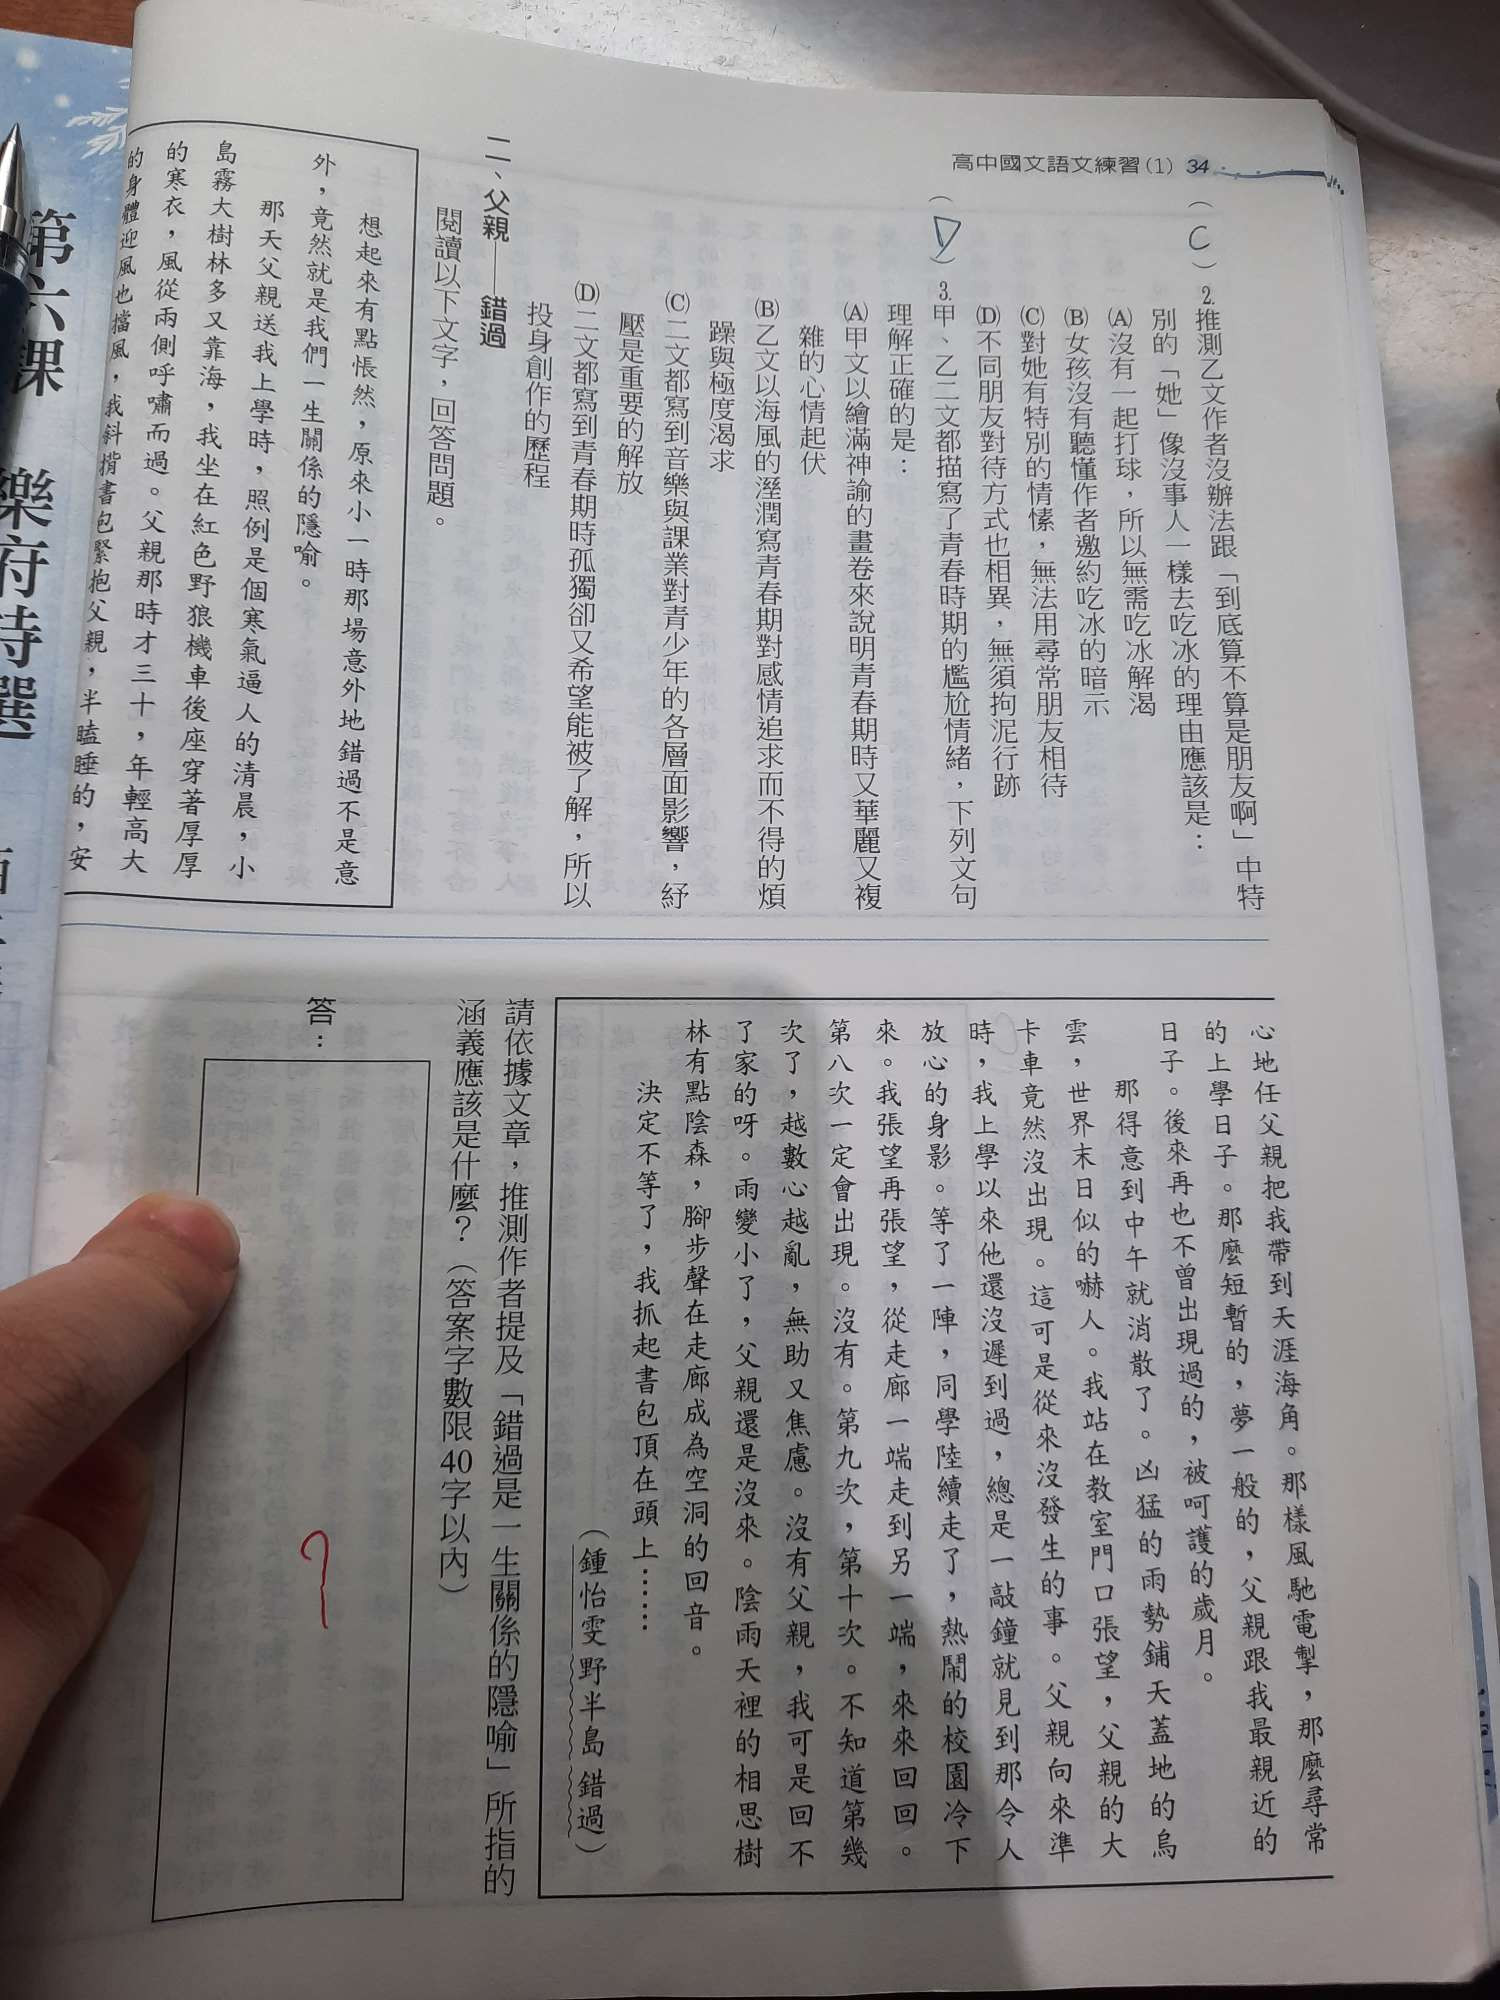 高中國文語文練習(1) 34
( C ) 2. 推測乙文作者沒辦法跟「到底算不算是朋友啊」中特
別的「她」像沒事人一樣去吃冰的理由應該是：
(A)沒有一起打球，所以無需吃冰解渴
(B)女孩沒有聽懂作者邀約吃冰的暗示
(C)對她有特別的情愫，無法用尋常朋友相待
(D)不同朋友對待方式也相異，無須拘泥行跡
( D ) 3. 甲、乙二文都描寫了青春時期的尷尬情緒，下列文句
理解正確的是：
(A)甲文以繪滿神諭的畫卷來說明青春期時又華麗又複
雜的心情起伏
(B)乙文以海風的溼潤寫青春期對感情追求而不得的煩
躁與極度渴求
(C)二文都寫到音樂與課業對青少年的各層面影響，紓
壓是重要的解放
(D)二文都寫到青春期時孤獨卻又希望能被了解，所以
投身創作的歷程
二、父親——錯過
閱讀以下文字，回答問題。
想起來有點悵然，原來小一時那場意外地錯過不是意
外，竟然就是我們一生關係的隱喻。
那天父親送我上學時，照例是個寒氣逼人的清晨，小
島霧大樹林多又靠海，我坐在紅色野狼機車後座穿著厚厚
的寒衣，風從兩側呼嘯而過。父親那時才三十，年輕高大
的身體迎風也擋風，我斜揹書包緊抱父親，半瞌睡的，安
心地任父親把我帶到天涯海角。那樣風馳電掣，那麼尋常
的上學日子。那麼短暫的，夢一般的，父親跟我最親近的
日子。後來再也不曾出現過的，被呵護的歲月。
那得意到中午就消散了。凶猛的雨勢鋪天蓋地的烏
雲，世界末日似的嚇人。我站在教室門口張望，父親的大
卡車竟然沒出現。這可是從來沒發生的事。父親向來準
時，我上學以來他還沒遲到過，總是一敲鐘就見到那令人
放心的身影。等了一陣，同學陸續走了，熱鬧的校園冷下
來。我張望再張望，從走廊一端走到另一端，來來回回。
第八次一定會出現。沒有。第九次，第十次。不知道第幾
次了，越數心越亂，無助又焦慮。沒有父親，我可是回不
了家的呀。雨變小了，父親還是沒來。陰雨天裡的相思樹
林有點陰森，腳步聲在走廊成為空洞的回音。
決定不等了，我抓起書包頂在頭上……
（鍾怡雯野半島錯過）
請依據文章，推測作者提及「錯過是一生關係的隱喻」所指的
涵義應該是什麼？（答案字數限40字以內）
答：
第六課 樂府詩選